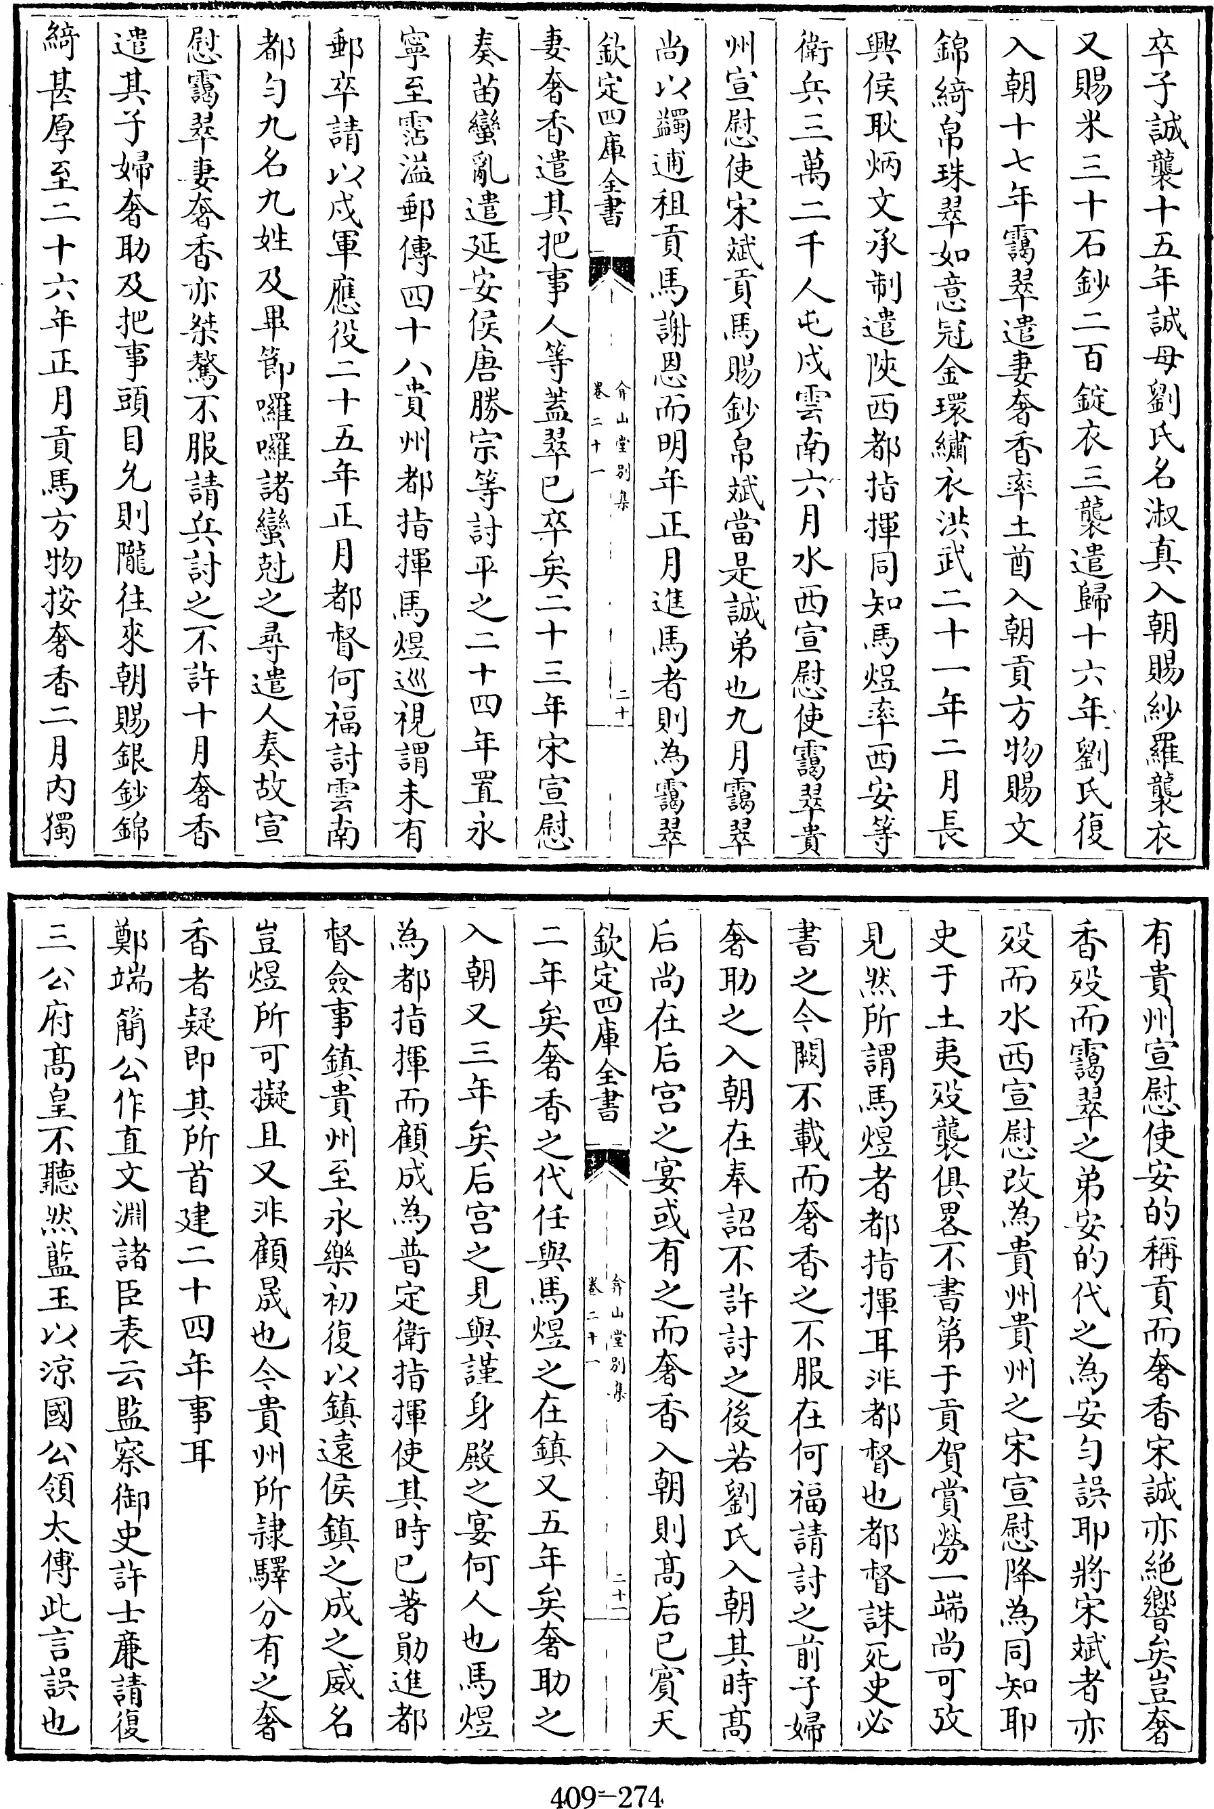 卒子誠襲十五年誠母劉氏名淑真入朝賜紗羅襲衣
又賜米三十石鈔二百錠衣三襲遣歸十六年劉氏復
入朝十七年靄翠遣妻奢香率土酋入朝貢方物賜文
錦綺帛珠翠如意冠金環繡衣洪武二十一年二月長
興侯耿炳文承制遣陝西都指揮同知馬煜率西安等
衛兵三萬二千人屯戍雲南六月水西宣慰使靄翠貴
州宣慰使宋斌貢馬賜鈔帛斌當是誠弟也九月靄翠
尚以蠲逋租貢馬謝恩而明年正月進馬者則為靄翠
欽定四庫全書
弇山堂別集
卷二十一
二十
妻奢香遣其把事人等蓋翠已卒矣二十三年宋宣慰
奏苗蠻亂遣延安侯唐勝宗等討平之二十四年置永
寧至霑溢郵傳四十八貴州都指揮馬煜巡視謂未有
郵卒請以戍軍應役二十五年正月都督何福討雲南
都勻九名九姓及畢節囉囉諸蠻尅之尋遣人奏故宣
慰靄翠妻奢香亦桀驁不服請兵討之不許十月奢香
遣其子婦奢助及把事頭目允則隴往來朝賜銀鈔錦
綺甚厚至二十六年正月貢馬方物按奢香二月內獨
有貴州宣慰使安的稱貢而奢香宋誠亦絶響矣豈奢
香歿而靄翠之弟安的代之為安勻誤耶將宋斌者亦
歿而水西宣慰改為貴州貴州之宋宣慰降為同知耶
史于土夷歿襲俱畧不書第于貢賀賞勞一端尚可攷
見然所謂馬煜者都指揮耳非都督也都督誅死史必
書之今闕不載而奢香之不服在何福請討之前子婦
奢助之入朝在奉詔不許討之後若劉氏入朝其時髙
后尚在后宫之宴或有之而奢香入朝則髙后已賓天
欽定四庫全書
弇山堂別集
卷二十一
二十一
二年矣奢香之代任與馬煜之在鎮又五年矣奢助之
入朝又三年矣后宫之見與謹身殿之宴何人也馬煜
為都指揮而顧成為普定衛指揮使其時已著勛進都
督僉事鎮貴州至永樂初復以鎮遠侯鎮之成之威名
豈煜所可擬且又非顧晟也今貴州所隷驛分有之奢
香者疑即其所首建二十四年事耳
鄭端簡公作直文淵諸臣表云監察御史許士廉請復
三公府髙皇不聽然藍玉以涼國公領太傅此言誤也
409-274